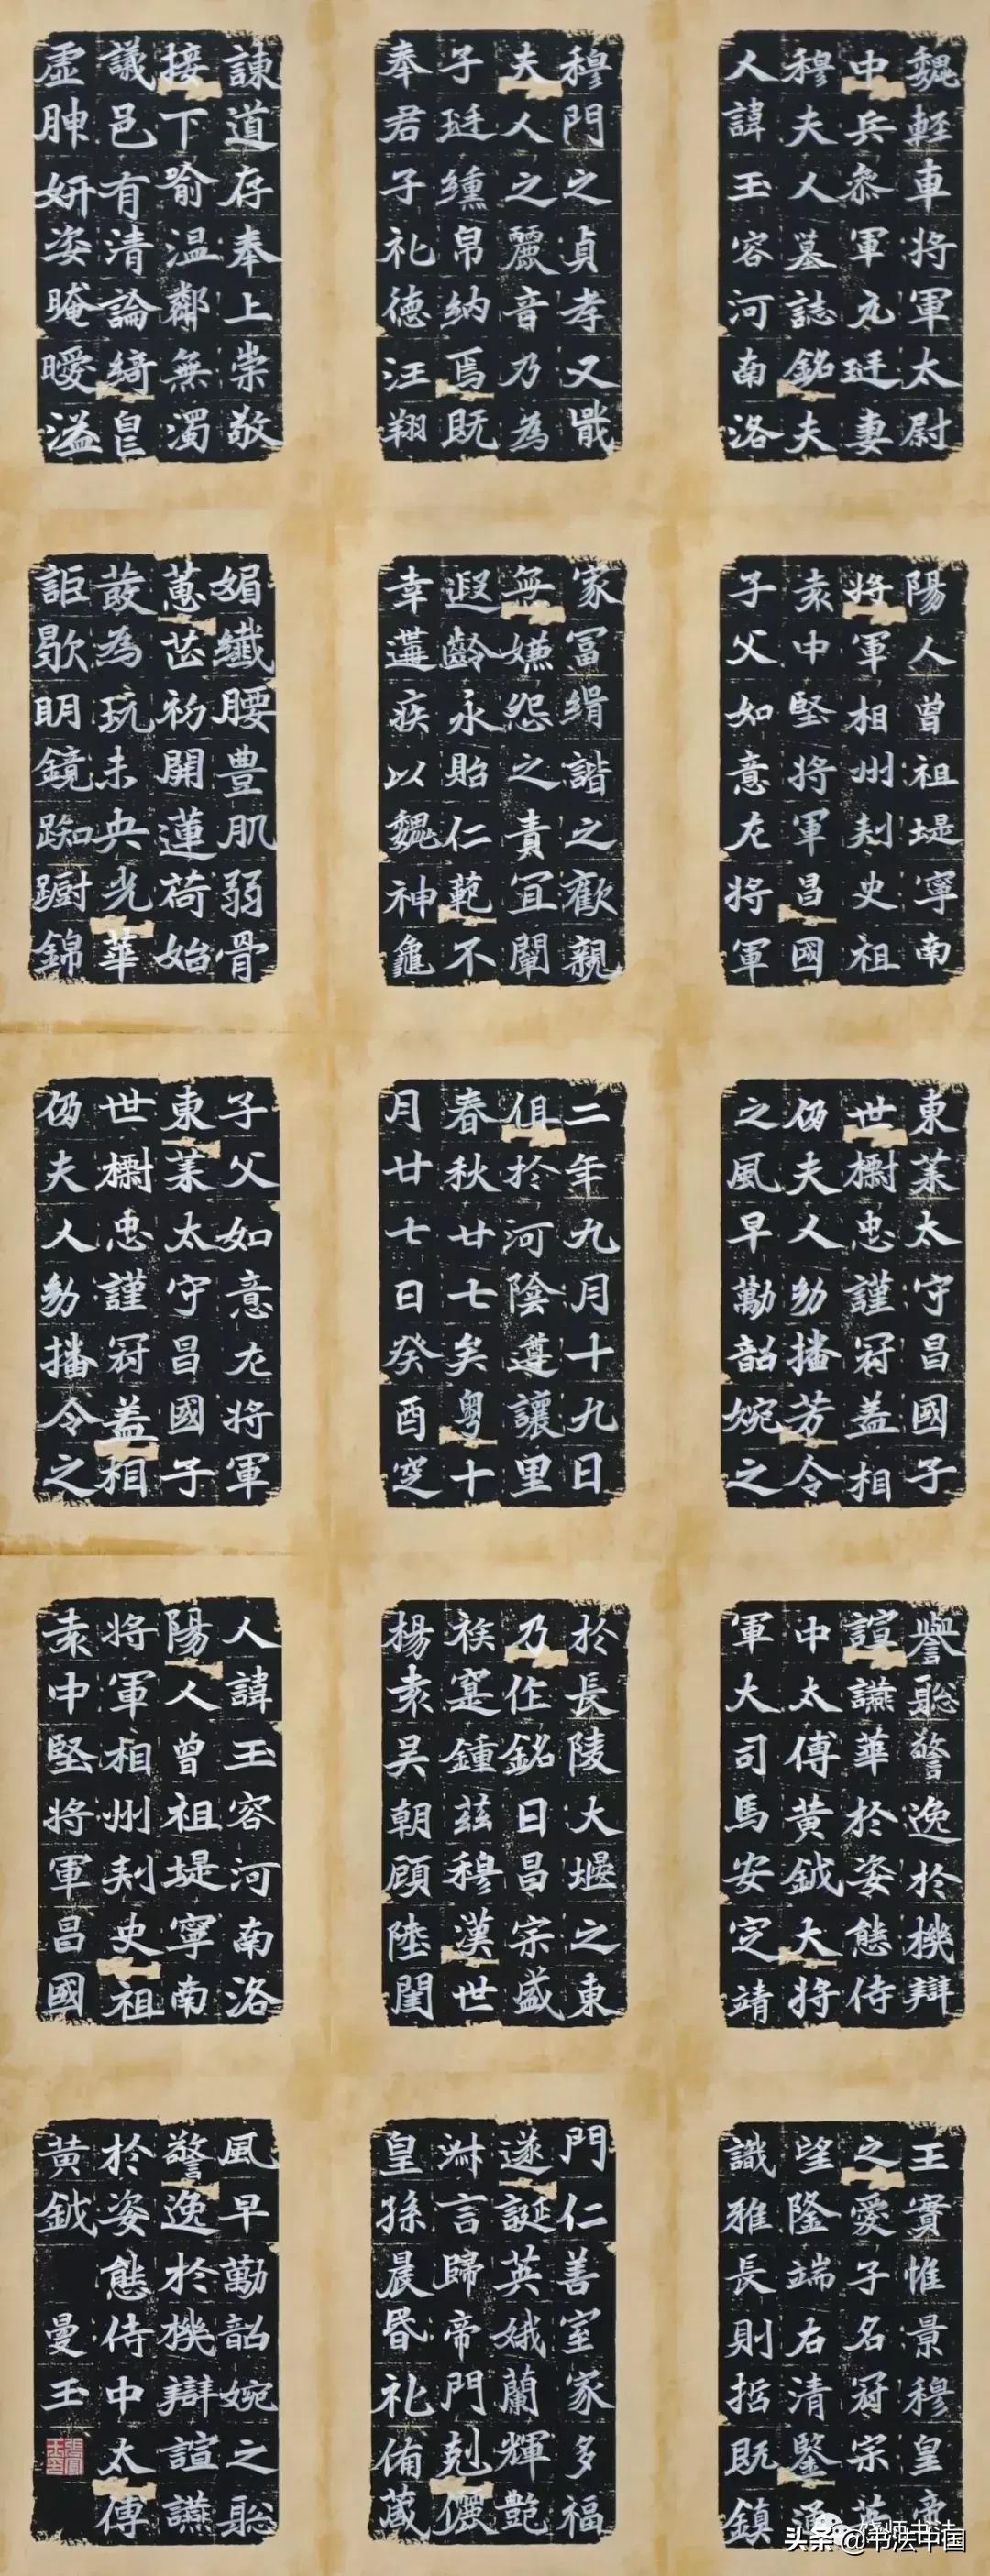 魏輕車將軍太尉
中兵叅軍元珽妻
穆夫人墓誌銘夫
人諱玉容河南洛
陽人曾祖堤寧南
將軍相州刾史祖
袁中堅將軍昌國
子父如意左將軍
東萊太守昌國子
世櫥忠謹冠盖相
仍夫人幼播芳令
之風早勵韶婉之
譽聡警逸於機辯
諠讌華於姿態侍
中太傅黃鉞大將
軍大司馬安定靖
王實惟景穆皇帝
之愛子名冠宗英
望隆端右清鑒通
識雅長則哲既鎮
穆門之貞孝又戢
夫人之麗音乃為
子珽纁帛納焉既
奉君子礼德汪翔
家冨緝諧之歡親
無嫌怨之責宜闡
遐齡永貽仁範不
幸遘疾以魏神龜
二年九月十九日
俎於河陰遵讓里
春秋廿七矣粤十
月廿七日癸酉窆
於長陵大堰之東
乃作銘曰昌宗盛
祑寔鍾兹穆漢世
楊袁吴朝顧陸閨
門仁善室家多福
遂誕英娥蘭輝艷
淋言歸帝門剋儷
皇孫晨昏礼俻葴
諫道存奉上崇敬
接下喻温鄰無濁
議邑有清論綺皃
虚腗妍姿晻曖溢
媚纖腰豊肌弱骨
蕙茝初開蓮荷始
蕟為玩未央光華
詎歇明鏡踟蹰錦
子父如意左將軍
東萊太守昌國子
世櫥忠謹冠盖相
仍夫人幼播令之
人諱玉容河南洛
陽人曾祖堤寧南
將軍相州刾史祖
袁中堅將軍昌國
風早勵韶婉之聡
警逸於機辯諠讌
於姿態侍中太傅
黃鉞 曼玉
头条@书法中国